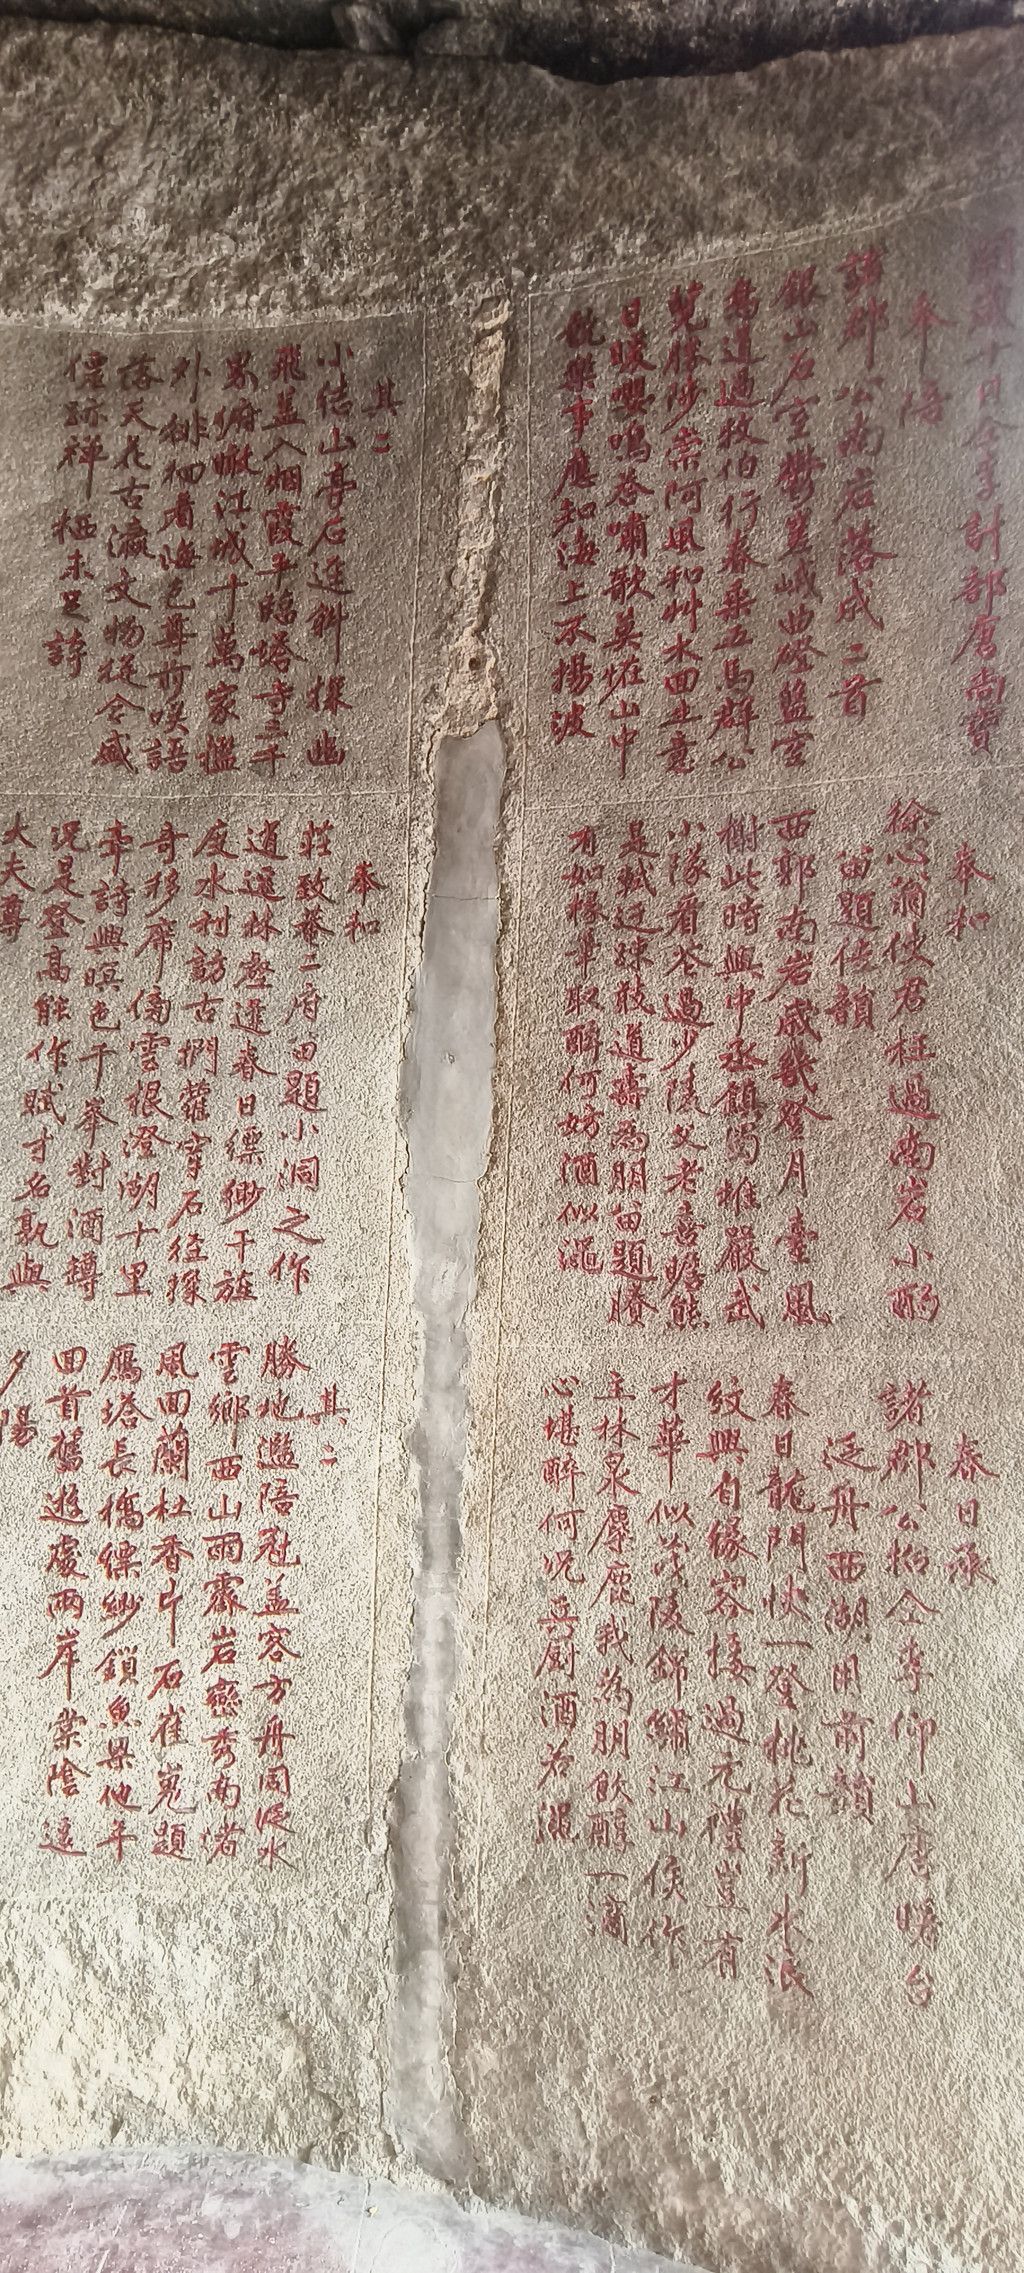 奉陪
諸郡公南岩落成二首
銀山石室鬱嵳峨曲磴盤空
鳥道過牧伯行春乗五馬群公
覽勝陟崇阿風和艸木回生意
日暖嚶鳴答嘯歌莫怪山中
饒樂事應知海上不揚波
其二
小結山亭石逕斜探幽
飛盖入烟霞平臨塔寺三千
界俯瞰江城十萬家檻
外徘徊看海色尊前咲語
落天花古瀛文物從今盛
僊跡禅栖未足誇
奉和
徐心 使君枉過南岩小酌
留題佳韻
西郭南岩歲幾登月臺風
榭此時興中丞鎮蜀推嚴武
小隊看花過少陵父老喜瞻熊
是軾迂踈敢道壽為朋留題賸
有如椽筆取醉何妨酒似澠
奉和
莊致菴二府留題小洞之作
逍遥林壑遲春日縹緲干旌
度水利訪古捫蘿穿石徑探
奇移席傍雲根澄湖十里
牽詩興暝色千峯對酒罇
況是登高能作賦才名孰與
大夫尊
春日承
諸郡公招仝李仰山唐曙台
泛舟西湖用前韻
春日龍門快一登桃花新水浪
紋興自緣客接過元禮豈有
才華似茂陵錦繡江山侯作
主林泉麋鹿我為朋飲醇一滴
心堪醉何況兵厨酒若澠
其二
勝地濫陪冠盖客方舟同泛水
雲鄉西山雨霽岩巒秀南渚
風回蘭杜香片石崔嵬題
鴈塔長橋縹緲鎖魚梁他年
回首舊遊處兩岸棠陰遠
夕陽